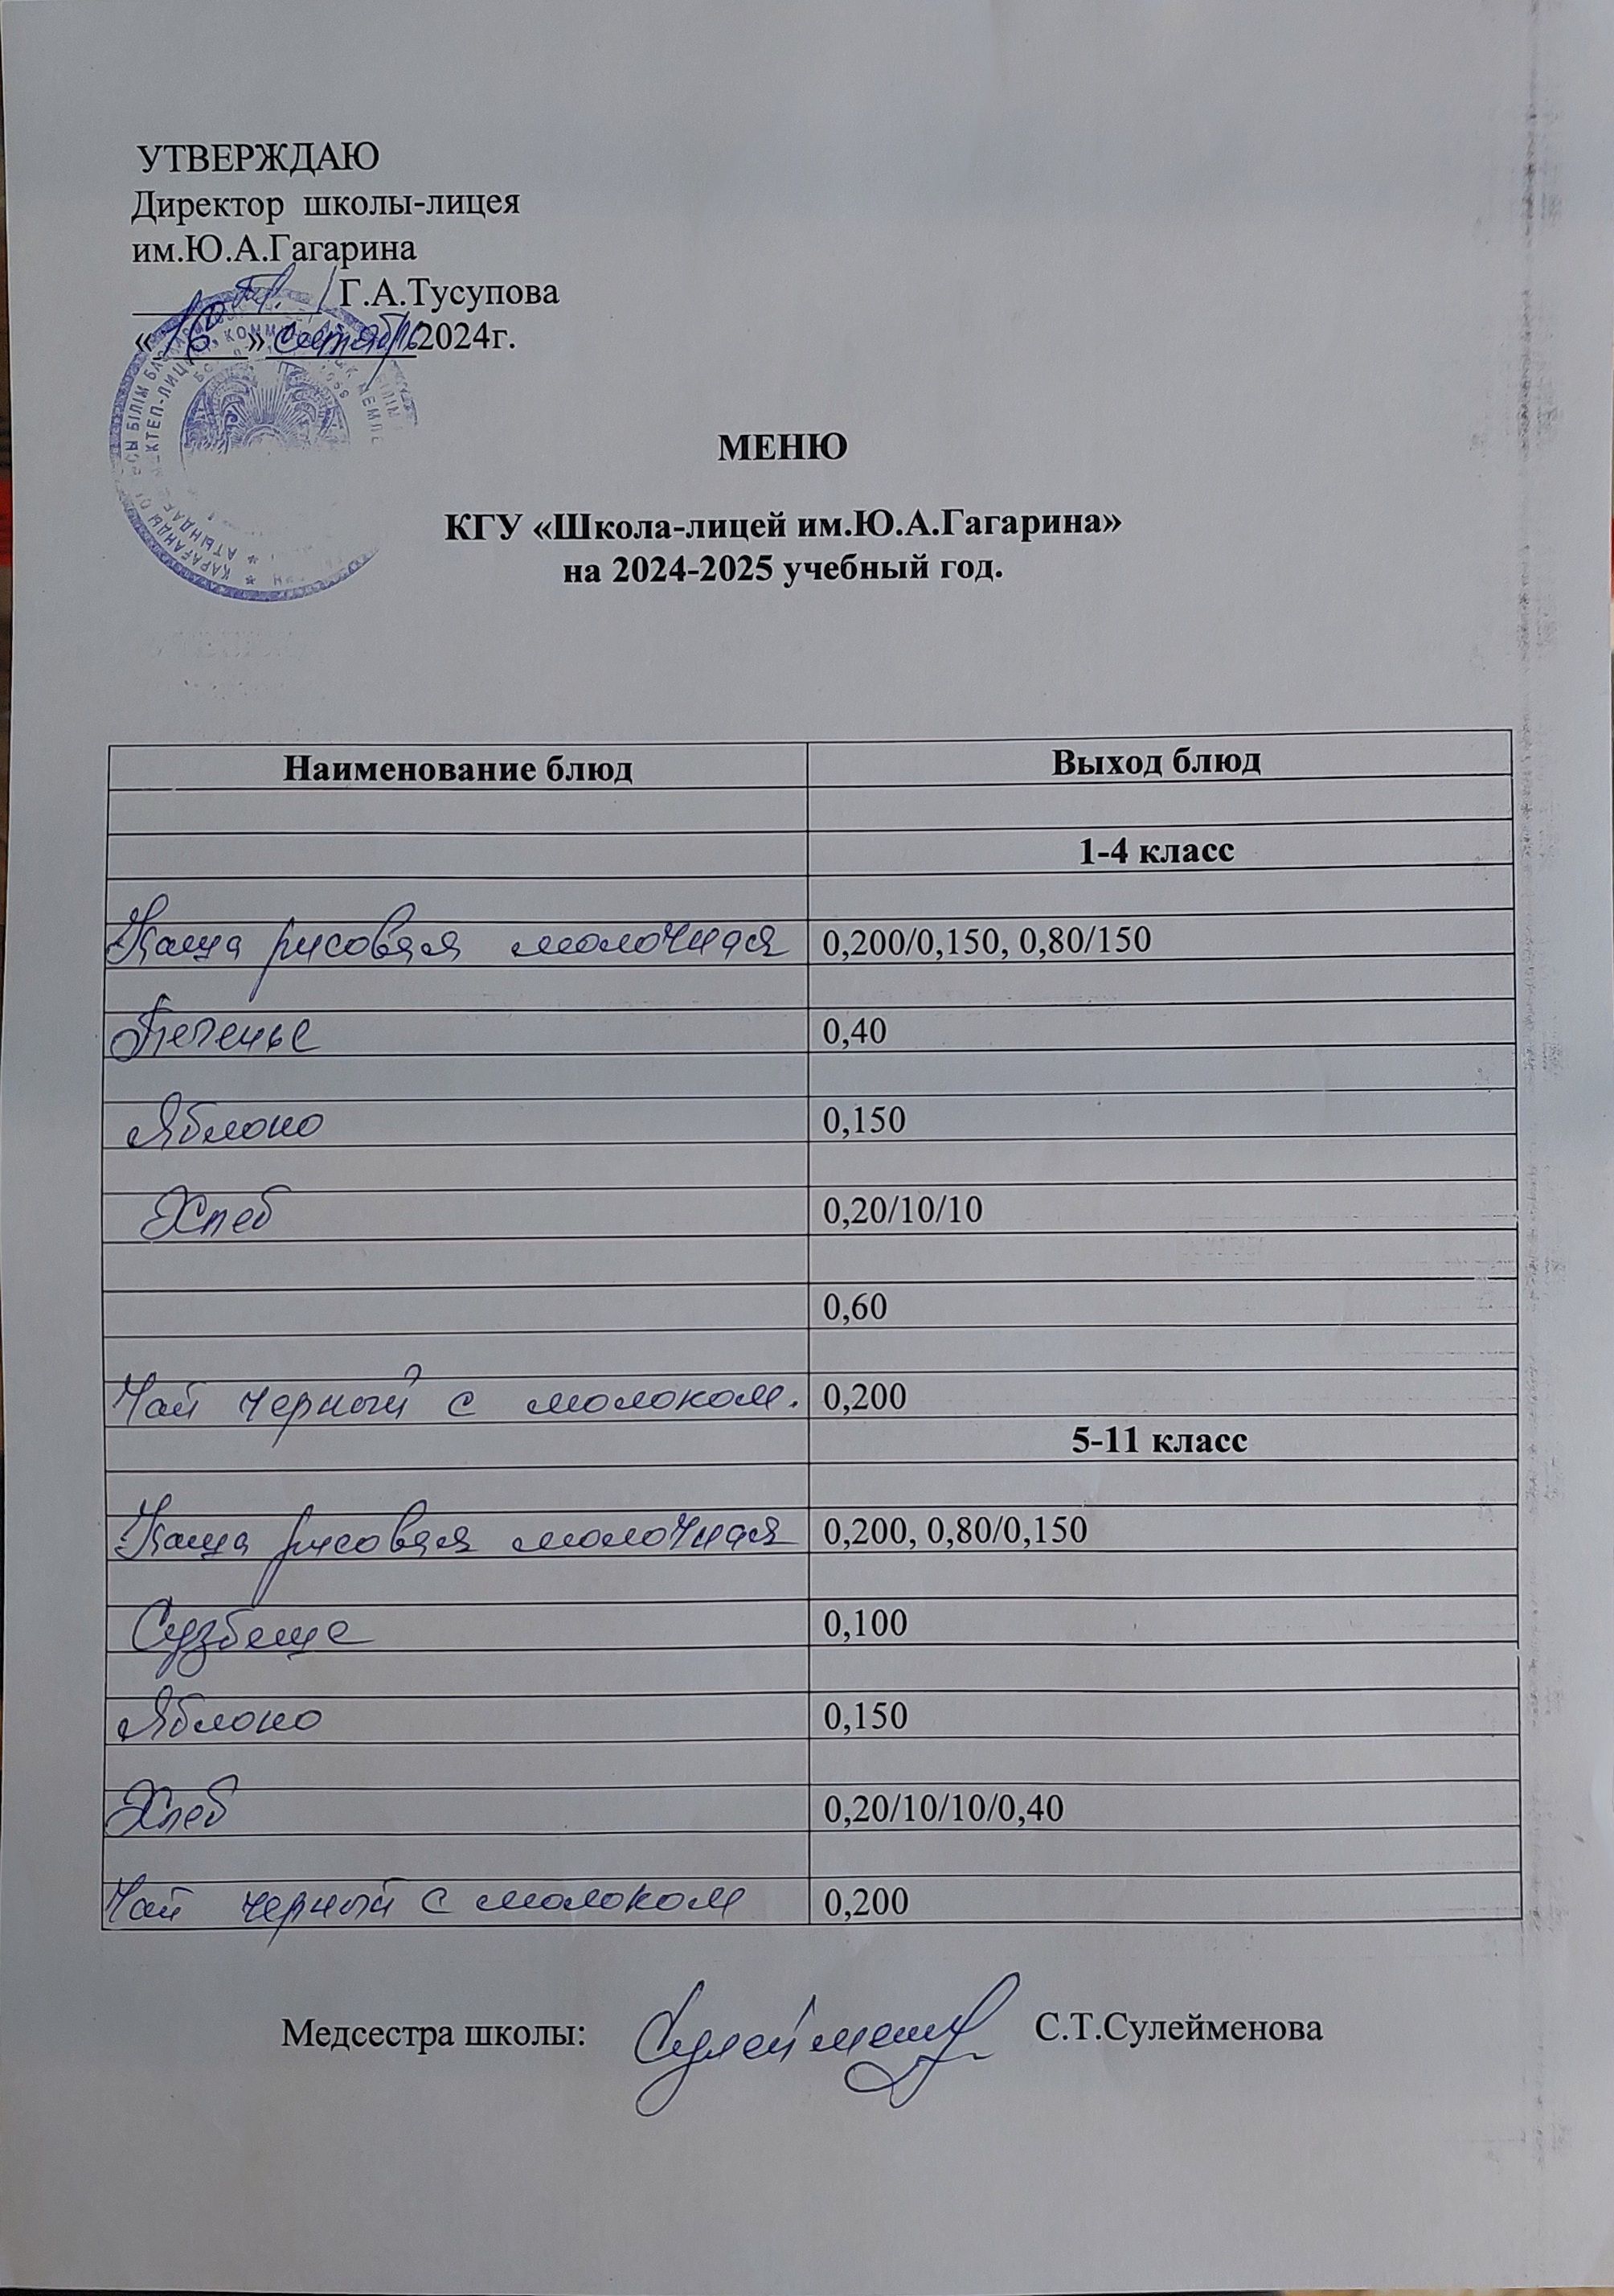 УТВЕРЖДАЮ
Директор школы-лицея
им.Ю.А.Гагарина
/ Г.А.Тусупова
«16» сентября 2024г.
МЕНЮ
КГУ «Школа-лицей им.Ю.А.Гагарина»
на 2024-2025 учебный год.
Наименование блюд Выход блюд
1-4 класс
Каша рисовая молочная 0,200/0,150, 0,80/150
Печенье 0,40
Яблоко 0,150
Хлеб 0,20/10/10
0,60
Чай черный с молоком. 0,200
5-11 класс
Каша рисовая молочная 0,200, 0,80/0,150
0,100
Яблоко 0,150
Хлеб 0,20/10/10/0,40
Чай черный с молоком 0,200
Медсестра школы: С.Т.Сулейменова